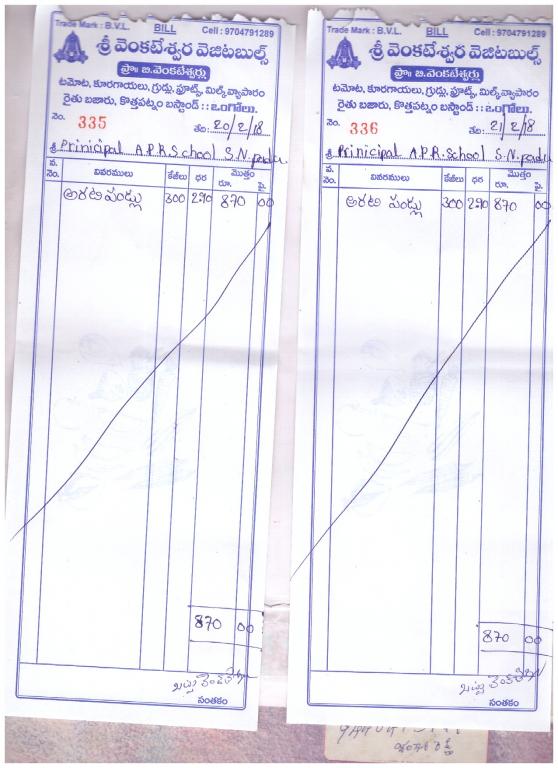 Trade Mark : B.V.L. BILL Cell : 9704791289
శ్రీ వెంకటేశ్వర వెజిటబుల్స్
ప్రొ॥ బి.వెంకటేశ్వర్లు
టమోట, కూరగాయలు, గ్రుడ్లు, ఫ్రూట్స్, మిల్క్ వ్యాపారం
రైతు బజారు, కొత్తపట్నం బస్టాండ్ : : ఒంగోలు.
నెం. 335 తేది: 20/2/18
శ్రీ Prinicipal A.P.R.School S.N.padu
వ. నెం. వివరములు కేజీలు ధర మొత్తం రూ. పై.
అరటి పండ్లు 300 2.90 870 00
870 00
సంతకం
Trade Mark : B.V.L. BILL Cell : 9704791289
శ్రీ వెంకటేశ్వర వెజిటబుల్స్
ప్రొ॥ బి.వెంకటేశ్వర్లు
టమోట, కూరగాయలు, గ్రుడ్లు, ఫ్రూట్స్, మిల్క్ వ్యాపారం
రైతు బజారు, కొత్తపట్నం బస్టాండ్ : : ఒంగోలు.
నెం. 336 తేది: 21/2/18
శ్రీ Prinicipal A.P.R.School S.N.padu
వ. నెం. వివరములు కేజీలు ధర మొత్తం రూ. పై.
అరటి పండ్లు 300 2.90 870 00
870 00
సంతకం